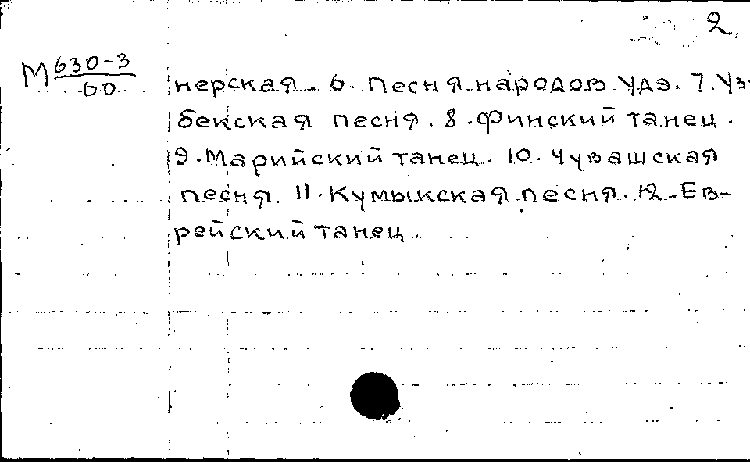 2
М 630-3
60
нерская. 6. Песня народов Удэ. 7. Уз-
бекская песня. 8. Финский танец.
9. Марийский танец. 10. Чувашская
песня. 11. Кумыкская песня. 12. Ев-
рейский танец.